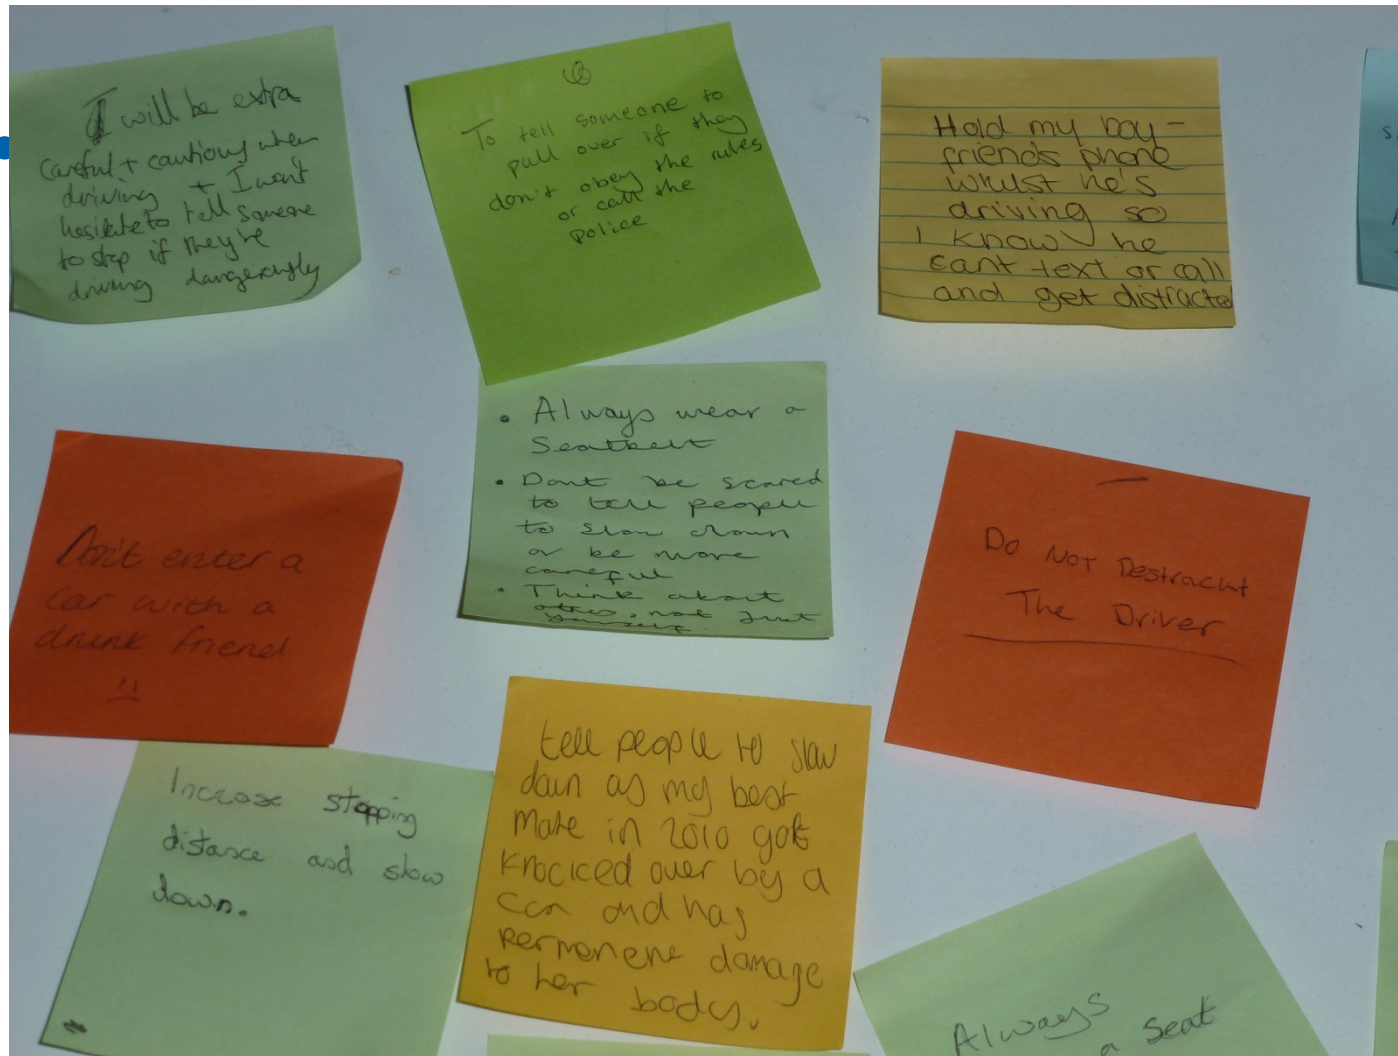 I will be extra
careful + cautious when
driving + I wont
hesitate to tell someone
to stop if they're
driving dangerously
To tell someone to
pull over if they
don't obey the rules
or call the
Police
Hold my boy-
friends phone
whilst he's
driving so
I know he
cant text or call
and get distracted
Don't enter a
car with a
drunk friend
• Always wear a
Seatbelt
• Dont be scared
to tell people
to slow down
or be more
careful
• Think about
others, not Just
yourself.
Do Not Destracht
The Driver
Increase stopping
distance and slow
down.
tell people to slow
down as my best
mate in 2010 got
knocked over by a
car and has
permanent damage
to her body.
Always
a Seat